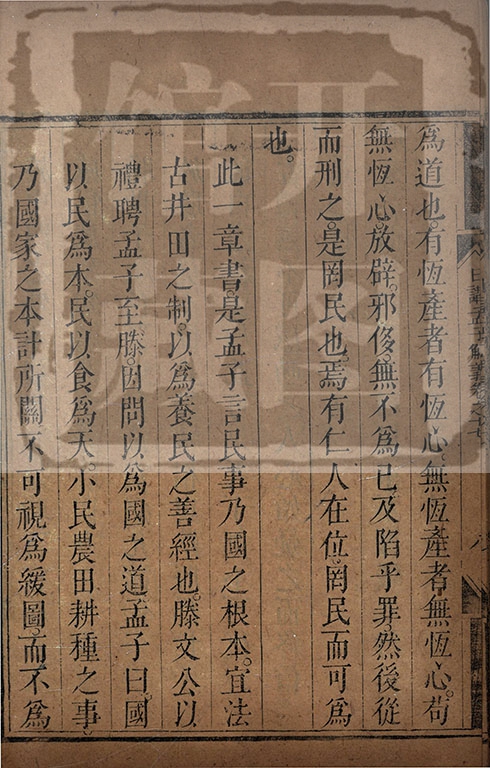 爲道也。有恆產者有恆心。無恆產者無恆心。茍
無恆心放辟。邪侈。無不爲已及陷乎罪然後從
而刑之。是罔民也。焉有仁人在位。罔民而可爲
也。
此一章書是孟子言民事乃國之根本。宜法
古井田之制。以爲養民之善經也。滕文公以
禮聘孟子至滕。因問以爲國之道孟子曰。國
以民爲本。民以食爲天。小民農田耕種之事
乃國家之本計所關不可視爲緩圖。而不爲
日講孟子解義卷之七
八